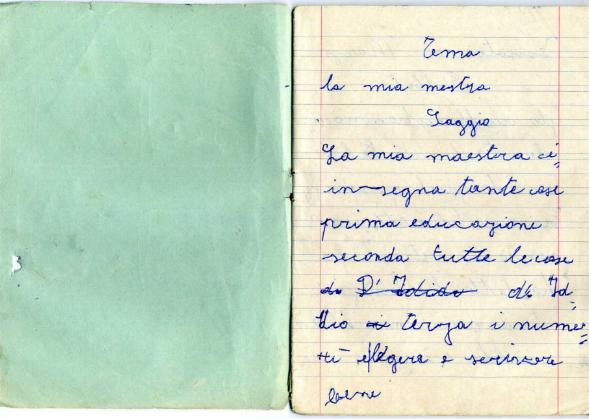 Tema
la mia mestra
Saggio
La mia maestra ci
in-segna tante cose
prima educazione
seconda tutte le cose
di Id=
dio terza i nume=
ri e legere e scrivere
bene